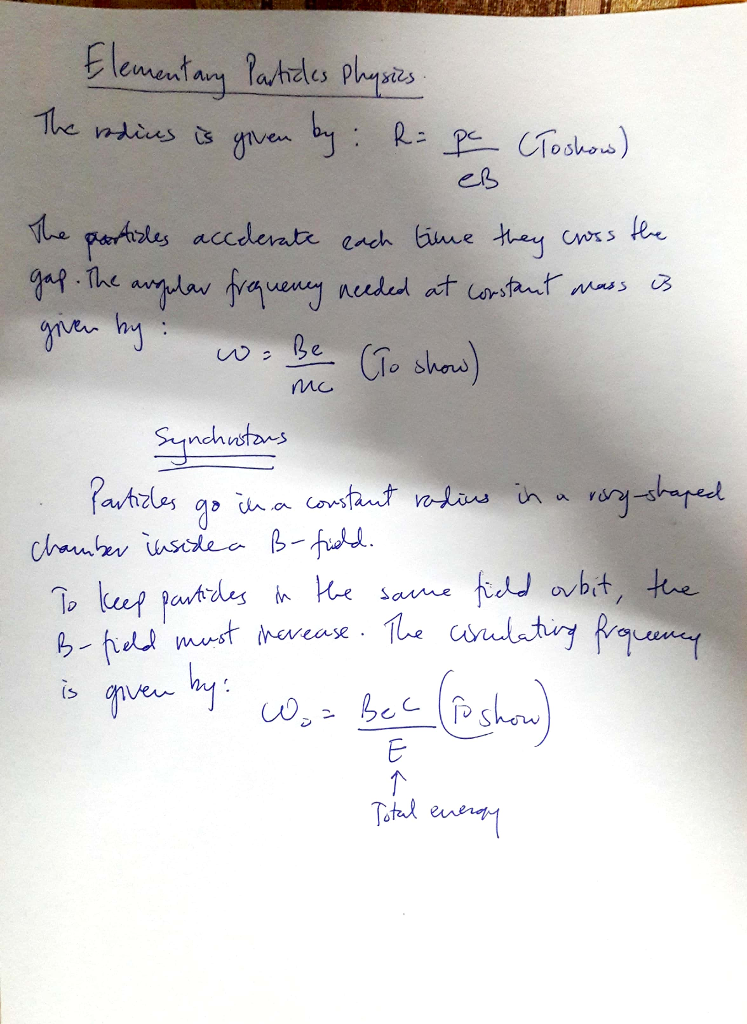 Elementary Particles Physics
The radius is given by : R = pc / eB (To show)
The particles accelerate each time they cross the
gap. The angular frequency needed at constant mass is
given by :
ω = Be / mc (To show)
Synchrotons
Particles go in a constant radius in a ring-shaped
chamber inside a B-field.
To keep particles in the same field orbit, the
B-field must increase. The circulating frequency
is given by:
ω₀ = Bec / E (To show)
↑
Total energy